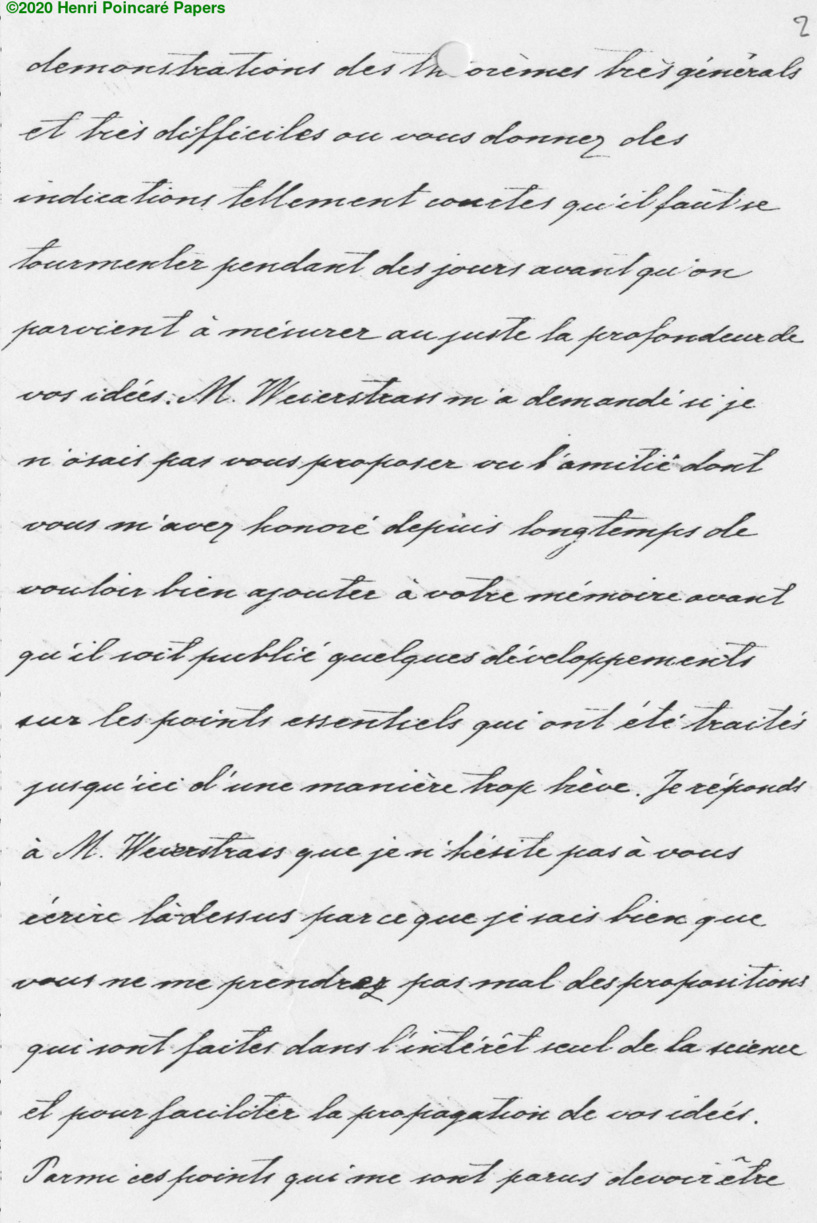 ©2020 Henri Poincaré Papers
2
demonstrations des théorèmes très générals
et très difficiles ou vous donnez des
indications tellement courtes qu'il faut se
tourmenter pendant des jours avant qu'on
parvient à mésurer au juste la profondeur de
vos idées. M. Weierstrass m'a demandé si je
n'osais pas vous proposer vu l'amitié dont
vous m'avez honoré depuis longtemps de
vouloir bien ajouter à votre mémoire avant
qu'il soit publié quelques développements
sur les points essentiels qui ont été traités
jusqu'ici d'une manière trop brève. Je réponds
à M. Weierstrass que je n'hésite pas à vous
écrire là-dessus parce que je sais bien que
vous ne me prendrez pas mal des propositions
qui sont faites dans l'intérêt seul de la science
et pour faciliter la propagation de vos idées.
Parmi ces points qui me sont parus devoir être